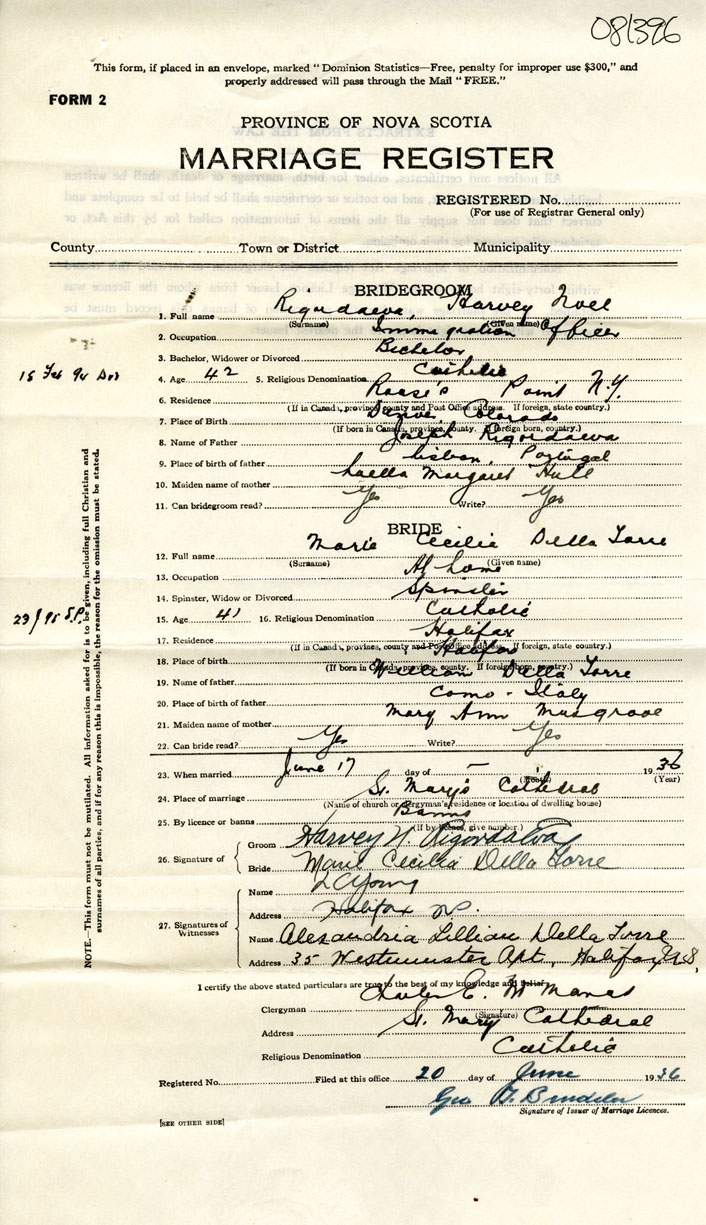 081396
This form, if placed in an envelope, marked "Dominion Statistics—Free, penalty for improper use $300," and
properly addressed will pass through the Mail "FREE."
FORM 2
PROVINCE OF NOVA SCOTIA
MARRIAGE REGISTER
REGISTERED No.
(For use of Registrar General only)
County Town or District Municipality
BRIDEGROOM
1. Full name Rigordaeva, Harvey Noel
(Surname) (Given name)
2. Occupation Immigration Officer
3. Bachelor, Widower or Divorced Bachelor
15 Feb 94
4. Age 42 5. Religious Denomination Catholic
6. Residence Rouse's Point N.Y.
(If in Canada, province, county and Post Office address. If foreign, state country.)
7. Place of Birth Denver Colorado
(If born in Canada, province, county. If foreign born, country.)
8. Name of Father Joseph Rigordaeva
9. Place of birth of father Lisbon, Portugal
10. Maiden name of mother Luella Margaret Hull
11. Can bridegroom read? Yes Write? Yes
BRIDE
12. Full name Marie Cecilia Della Torre
(Surname) (Given name)
13. Occupation At home
14. Spinster, Widow or Divorced Spinster
23/95 S.P.
15. Age 41 16. Religious Denomination Catholic
17. Residence Halifax
(If in Canada, province, county and Post Office address. If foreign, state country.)
18. Place of birth Halifax
(If born in Canada, province, county. If foreign born, country.)
19. Name of father William Della Torre
20. Place of birth of father Como - Italy
21. Maiden name of mother Mary Ann Musgrave
22. Can bride read? Yes Write? Yes
23. When married June 17 day of — 1936
(Month) (Year)
24. Place of marriage St. Mary's Cathedral
(Name of church or clergyman's residence or location of dwelling house)
25. By licence or banns Banns
(If by licence, give number.)
26. Signature of
Groom Harvey N. Rigordaeva
Bride Marie Cecilia Della Torre
27. Signatures of Witnesses
Name L C Young
Address Halifax N.S.
Name Alexandria Lillian Della Torre
Address 35 Westminster Apt., Halifax, N.S,
I certify the above stated particulars are true to the best of my knowledge and belief.
Clergyman Charles E. McManus
(Signature)
Address St. Mary Cathedral
Religious Denomination Catholic
Registered No. Filed at this office 20 day of June 1936
Geo
Signature of Issuer of Marriage Licences.
[SEE OTHER SIDE]
NOTE.—This form must not be mutilated. All information asked for is to be given, including full Christian and
surnames of all parties, and if for any reason this is impossible, the reason for the omission must be stated.